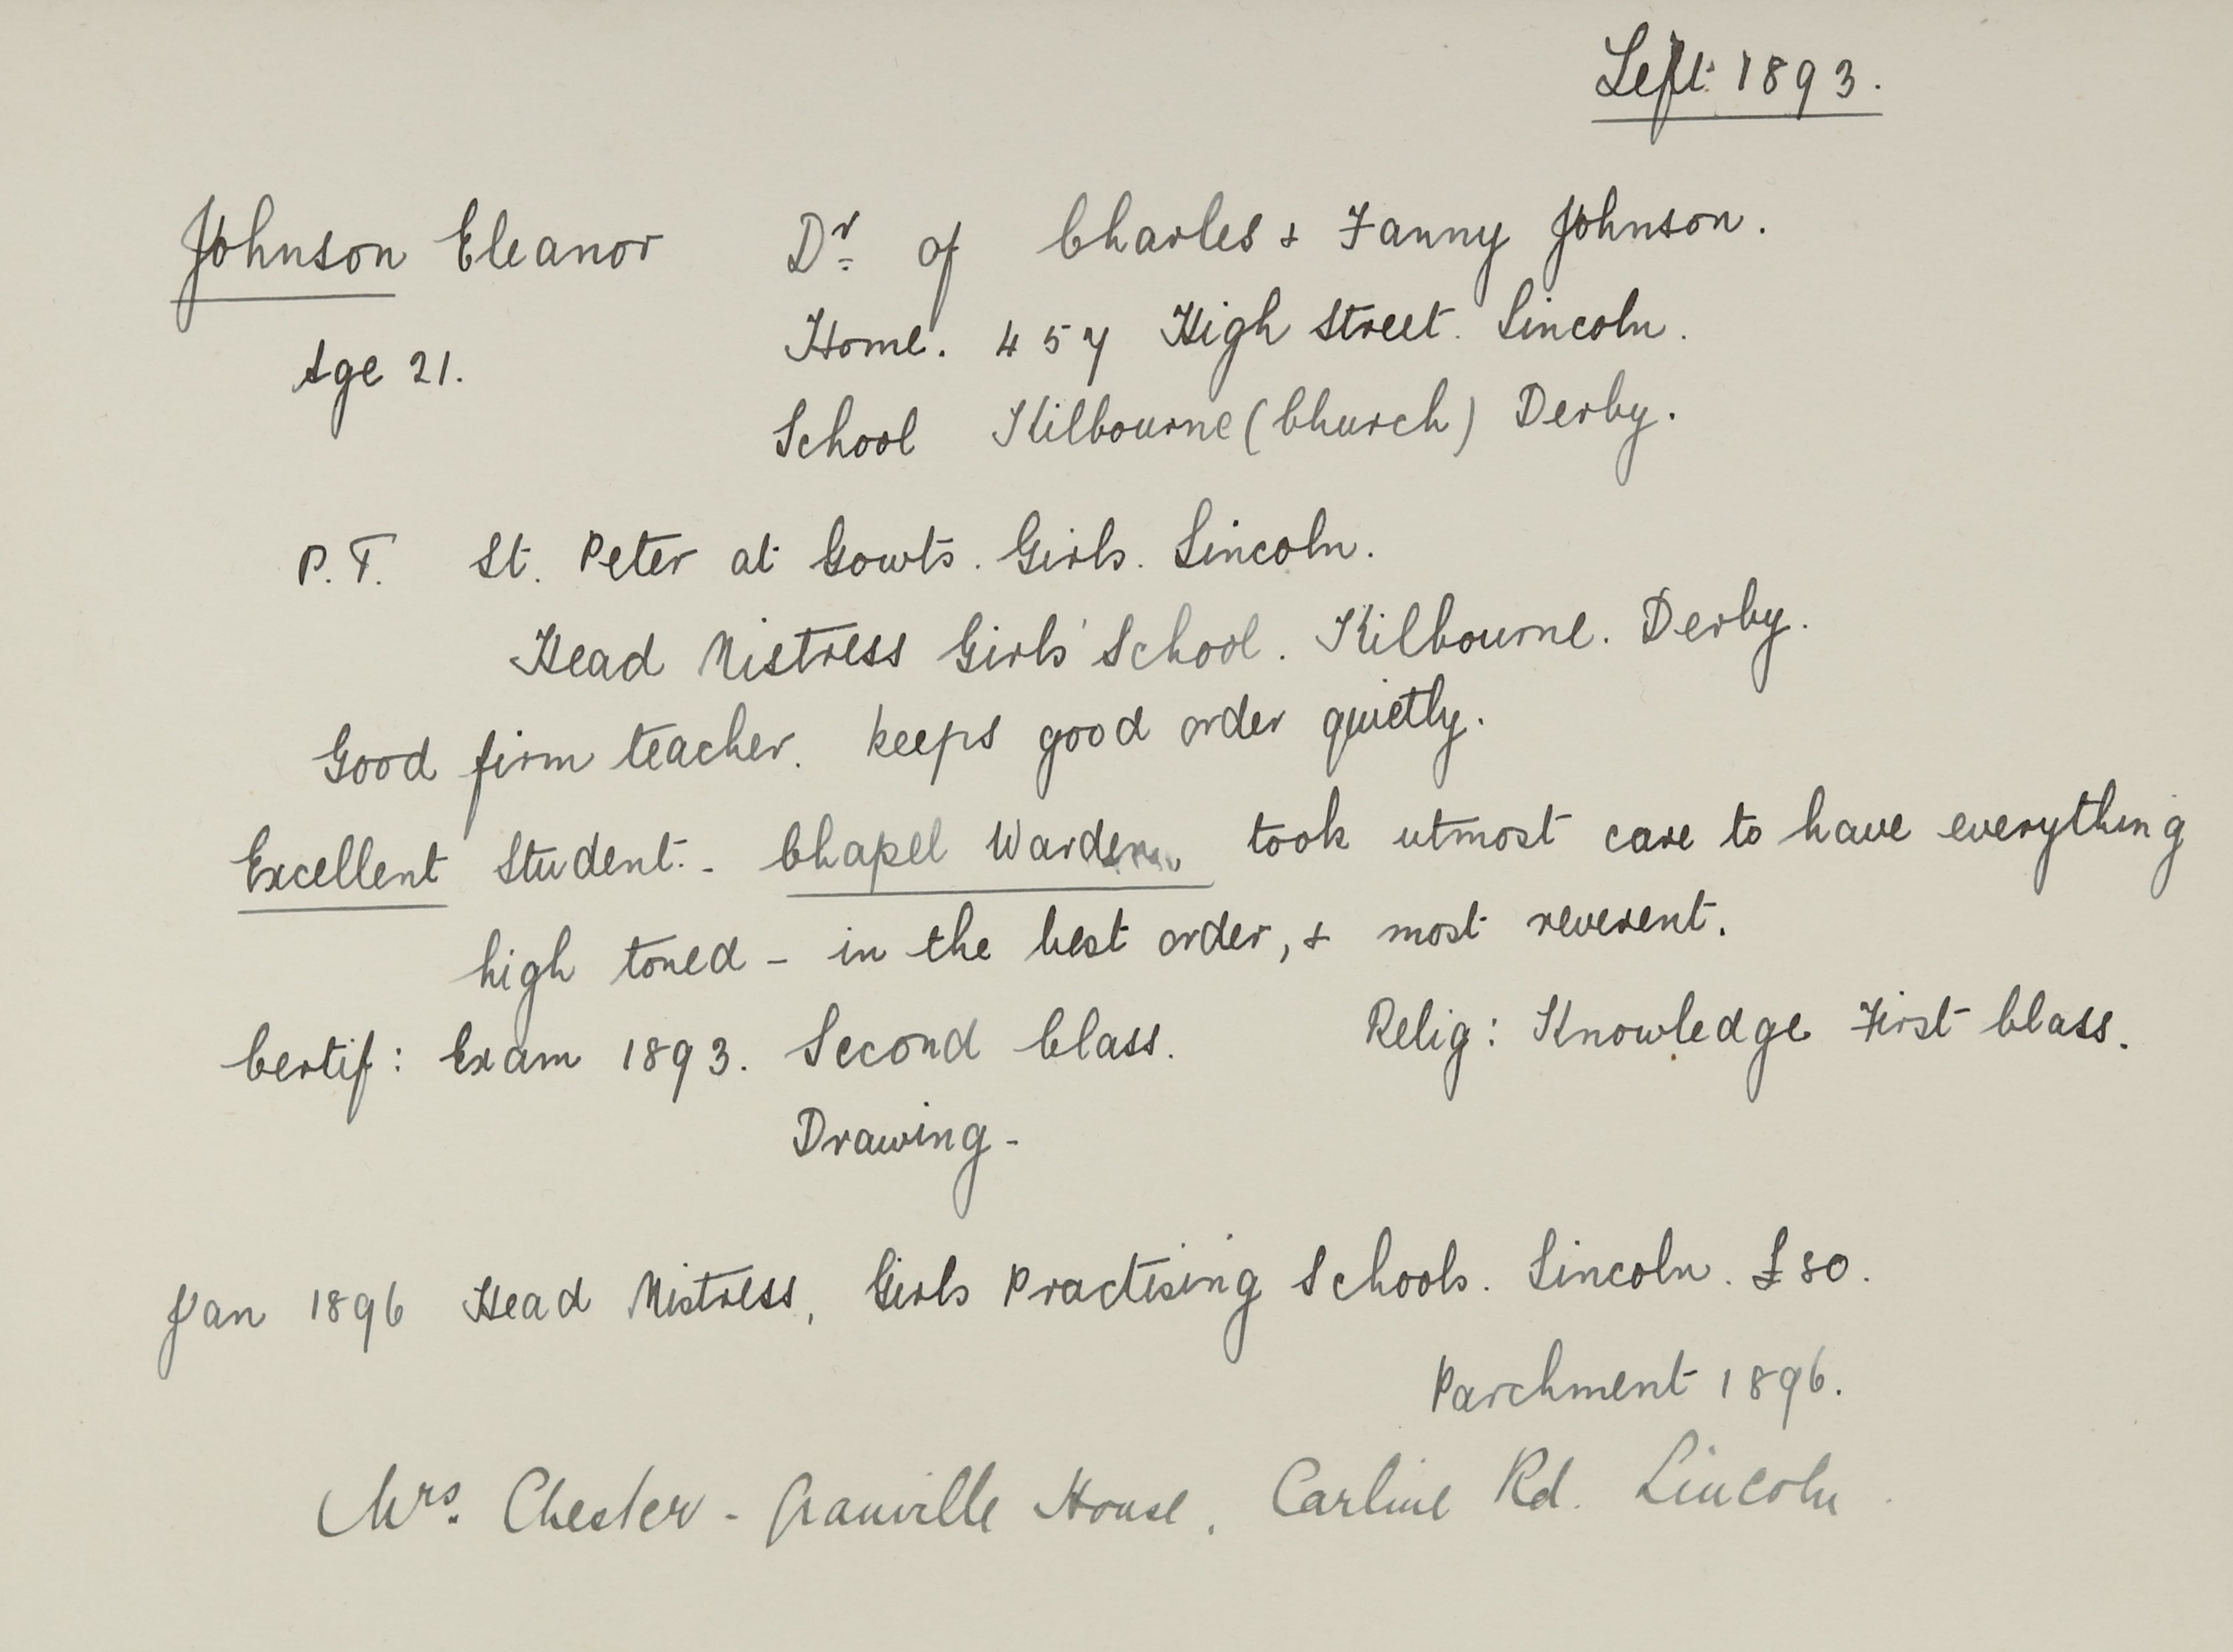 Left 1893.
Johnson Eleanor Dr of Charles + Fanny Johnson.
Age 21. Home. 457 High Street. Lincoln.
School Kilbourne (Church) Derby.
P.T. St. Peter at Gowts. Girls. Lincoln.
Head Mistress Girls' School. Kilbourne. Derby.
Good firm teacher. keeps good order quietly.
Excellent Student. - Chapel Warden took utmost care to have everything
high toned - in the best order, + most reverent.
Certif: Exam 1893. Second Class. Relig: Knowledge First Class.
Drawing -
Jan 1896 Head Mistress, Girls Practising Schools. Lincoln. £80.
Parchment 1896.
Mrs. Chester - Granville House, Carline Rd. Lincoln.